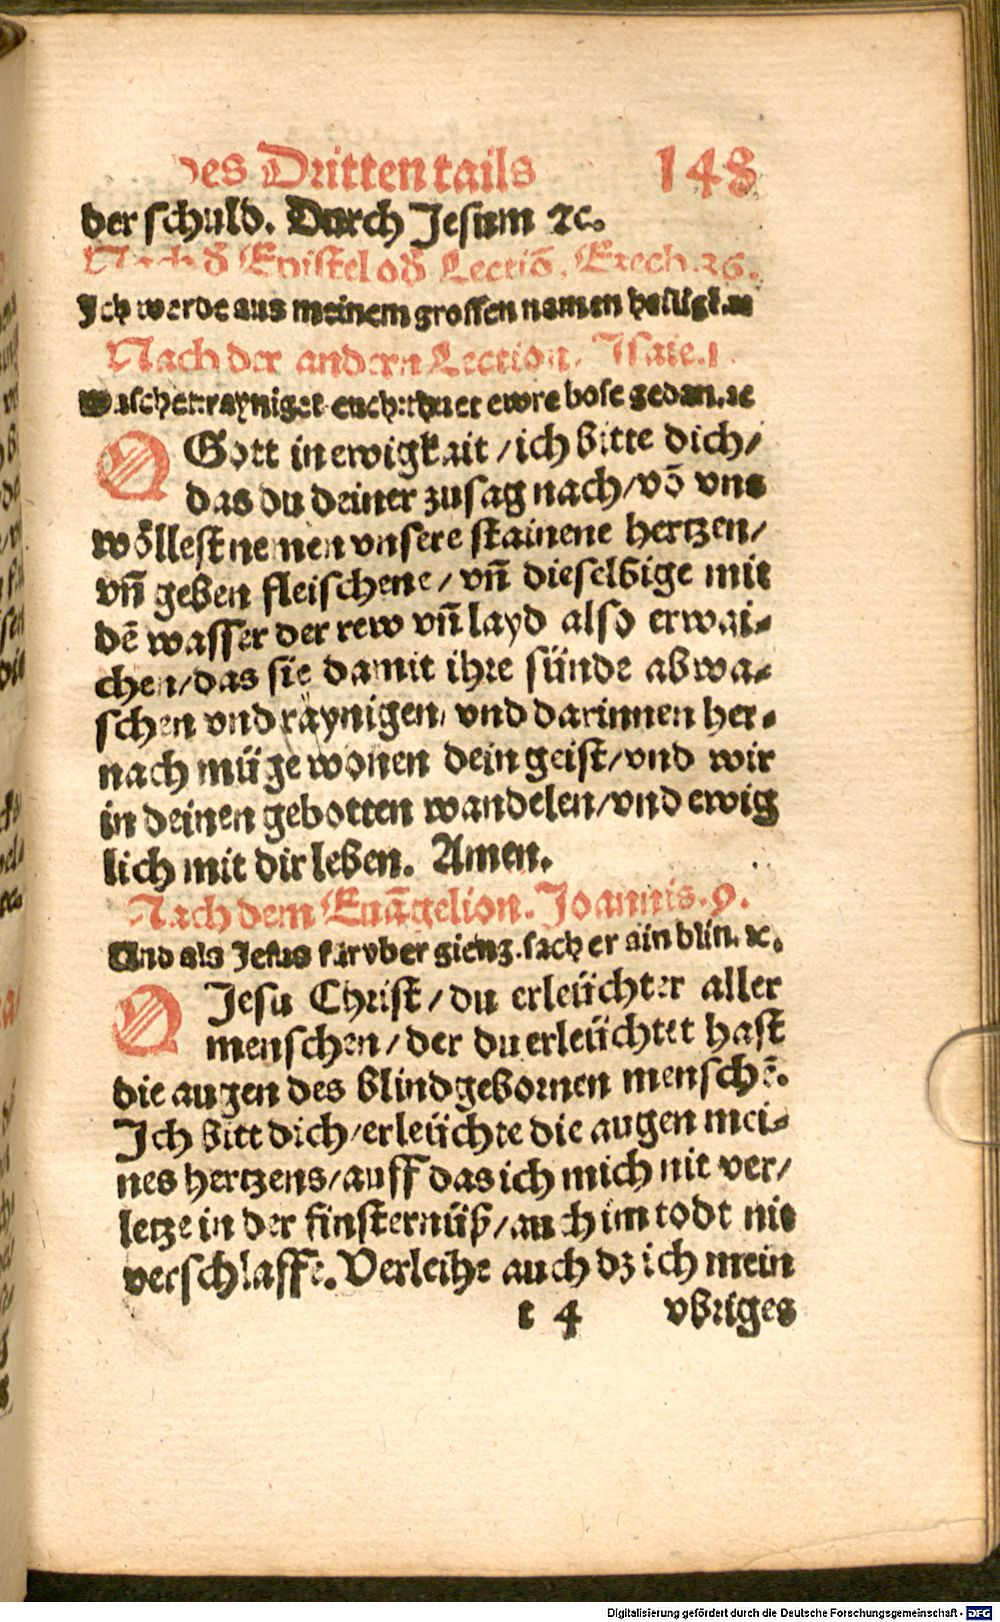 des Dritten tails 148
der schuld. Durch Jesum ꝛc.
Nach ď Epistel oď Lectiõ. Ezech. 36.
Ich werde aus meinem grossen namen
Nach der andern Lection. Isaie. 1.
ewre bose gedan. ꝛc
O Gott in ewigkait / ich bitte dich /
das du deiner zusag nach / võ vns
wöllest nemen vnsere stainene hertzen /
vñ geben fleischene / vñ dieselbige mit
dẽ wasser der rew vñ layd also erwai⸗
chen / das sie damit ihre sünde abwa⸗
schen vnd raynigen / vnd darinnen her⸗
nach müge wonen dein geist / vnd wir
in deinen gebotten wandelen / vnd ewig
lich mit dir leben. Amen.
Nach dem Euãgelion. Joannis. 9.
Und als Jesus fürvber gieng. sach er ain blin. ꝛc.
O Jesu Christ / du erleüchter aller
menschen / der du erleüchtet hast
die augen des blindgebornen menschẽ.
Ich bitt dich / erleüchte die augen mei⸗
nes hertzens / auff das ich mich nit ver /
letze in der finsternüß / auch im todt nit
verschlaffe. Verleihe auch dz ich mein
t 4 vbriges
Digitalisierung gefördert durch die Deutsche Forschungsgemeinschaft - DFG